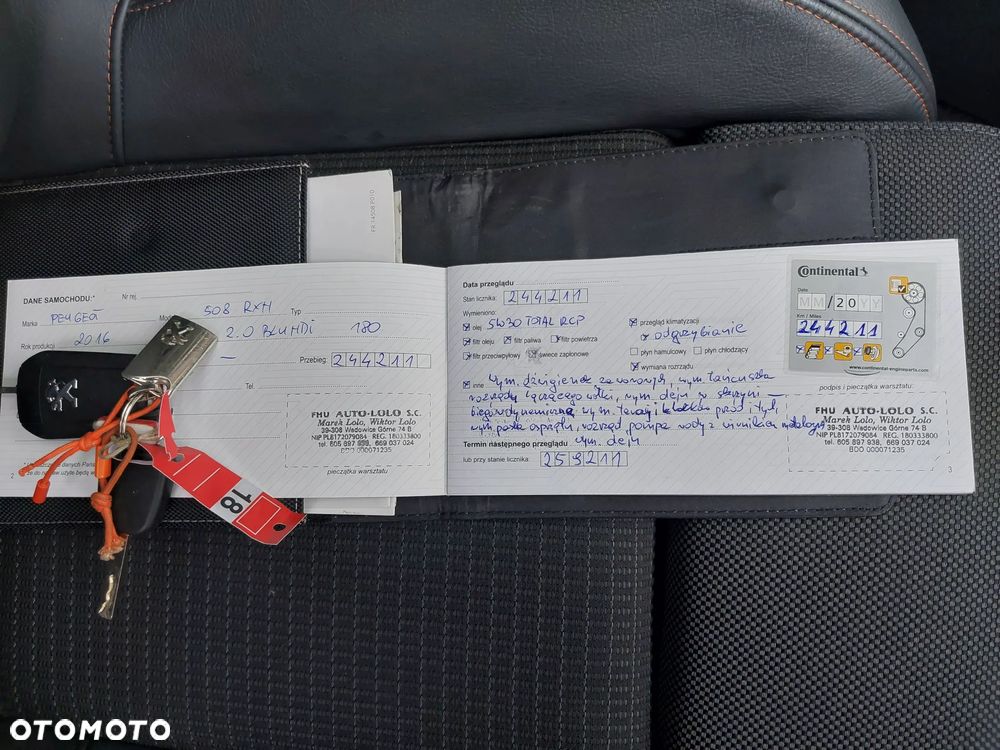 FR 14508 P010
DANE SAMOCHODU:*
Nr rej.
Marka PEUGEA 508 RXH Typ
Rok produkcji 2016 2.0 BLUHDi 180
Przebieg: 244211
Tel.
FHU AUTO-LOLO S.C.
Marek Lolo, Wiktor Lolo
39-308 Wadowice Górne 74 B
NIP PL8172079084 REG. 180333800
tel. 605 897 938, 669 037 024
BDO 000071235
pieczątka warsztatu
2
18
Data przeglądu
Stan licznika: 244211
Wymieniono:
olej 5W30 TOTAL RCP
filtr oleju filtr paliwa filtr powietrza
filtr przeciwpyłkowy świece zapłonowe
przegląd klimatyzacji
odgrzybianie
płyn hamulcowy płyn chłodzący
wymiana rozrządu
inne wym. dźwigienek zaworowych, wym łańcuszka
rozrządu łączącego wałki, wym. oleju w skrzyni
biegów dynamiczna, wym. tarcz i klocków przód i tył,
wym. paska osprzętu, rozrząd pompa wody z wirnikiem metalowym
wym. oleju
Termin następnego przeglądu
lub przy stanie licznika: 259211
Continental
Date
MM/20YY
Km / Miles
244211
www.continental-engineparts.com
podpis i pieczątka warsztatu:
FHU AUTO-LOLO S.C.
Marek Lolo, Wiktor Lolo
39-308 Wadowice Górne 74 B
NIP PL8172079084 REG. 180333800
tel. 605 897 938, 669 037 024
BDO 000071235
3
OTOMOTO